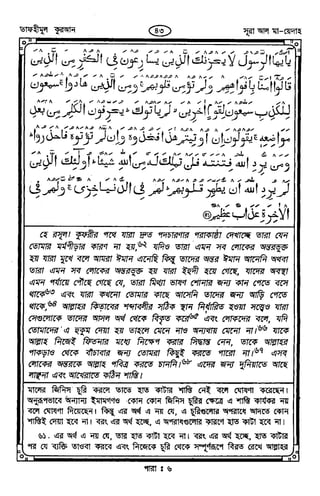 তাফহীমুল কুরআন
৪৩
সূরা আল মা-য়েদাহ
يٰٓاَيُّهَا الرَّسُوْلُ لَا يَحْزُنْكَ الَّذِيْنَ يُسَارِعُوْنَ فِى الْكُفْرِ مِنَ الَّذِيْنَ
قَالُوْٓا اٰمَنَّا بِاَفْوَاهِهِمْ وَلَمْ تُؤْمِنْ قُلُوْبُهُمْ ۛ وَمِنَ الَّذِيْنَ هَادُوْا ۛ سَمّٰعُوْنَ
لِلْكَذِبِ سَمّٰعُوْنَ لِقَوْمٍ اٰخَرِيْنَ ۙ لَمْ يَاْتُوْكَ ۭ يُحَرِّفُوْنَ الْكَلِمَ مِنْۢ بَعْدِ
مَوَاضِعِهٖ ۚ يَقُوْلُوْنَ اِنْ اُوْتِيْتُمْ هٰذَا فَخُذُوْهُ وَاِنْ لَّمْ تُؤْتَوْهُ فَاحْذَرُوْا ۭ
وَمَنْ يُّرِدِ اللّٰهُ فِتْنَتَهٗ فَلَنْ تَمْلِكَ لَهٗ مِنَ اللّٰهِ شَيْـًٔا ۭ اُولٰٓئِكَ الَّذِيْنَ
لَمْ يُرِدِ اللّٰهُ اَنْ يُّطَهِّرَ قُلُوْبَهُمْ ۭ لَهُمْ فِى الدُّنْيَا خِزْىٌ ۖ وَّلَهُمْ فِى
الْاٰخِرَةِ عَذَابٌ عَظِيْمٌ ﴿٤١﴾
হে রসূল! কুফরীর পথে যারা দ্রুত পদচারণার পরাকাষ্ঠা দেখাচ্ছে তারা যেন
তোমার মর্মপীড়ার কারণ না হয়,৬২ যদিও তারা এমন সব লোকের অন্তরভুক্ত
হয় যারা মুখে বলে আমরা ঈমান এনেছি কিন্তু তাদের অন্তর ঈমান আনেনি অথবা
তারা এমন সব লোকের অন্তরভুক্ত হয় যারা ইহুদী হয়ে গেছে, যাদের অবস্থা
এমন পর্যায়ে পৌঁছে গেছে যে, তারা মিথ্যা ভাষণ শোনার জন্য কান পেতে বসে
থাকে৬৩ এবং যারা কখনো তোমার কাছে আসেনি তাদের জন্য আড়ি পেতে
থাকে,৬৪ আল্লাহর কিতাবের শব্দাবলীর সঠিক স্থান নির্ধারিত হওয়া সত্ত্বেও যারা
সেগুলোকে তাদের আসল অর্থ থেকে বিকৃত করে৬৫ এবং লোকদের বলে, যদি
তোমাদের এ হুকুম দেয়া হয় তাহলে মেনে নাও অন্যথায় মেনো না।৬৬ যাকে
আল্লাহ নিজেই ফিতনার মধ্যে নিক্ষেপ করার সিদ্ধান্ত নেন, তাকে আল্লাহর
পাকড়াও থেকে বাঁচাবার জন্য তোমরা কিছুই করতে পারো না।৬৭ এসব
লোকের অন্তরকে আল্লাহ পবিত্র করতে চাননি।৬৮ এদের জন্য দুনিয়াতে আছে
লাঞ্ছনা এবং আখেরাতে কঠিন শাস্তি।
মালের জিনিস চুরি করলে তাতে হাত কাটার শাস্তি নেই বলে ঘোষণা করেছেন।
অনুরূপভাবে অন্যান্য ইমামগণও কোন কোন জিনিস চুরির ক্ষেত্রে এ শাস্তি কার্যকর নয়
বলে ঘোষণা দিয়েছেন। কিন্তু এর অর্থ এ নয় যে, এ চুরিগুলোর অপরাধে আদতে কোন
শাস্তিই দেয়া হবে না। বরং এর অর্থ হচ্ছে, এ অপরাধগুলোর কারণে হাত কাটা হবে না।
৬১. এর অর্থ এ নয় যে, তার হাত কাটা হবে না। বরং এর অর্থ হচ্ছে, হাত কাটার
পর যে ব্যক্তি তাওবা করবে এবং নিজেকে চুরি থেকে সম্পূর্ণরূপে বিরত রেখে আল্লাহর
পারা : ৬